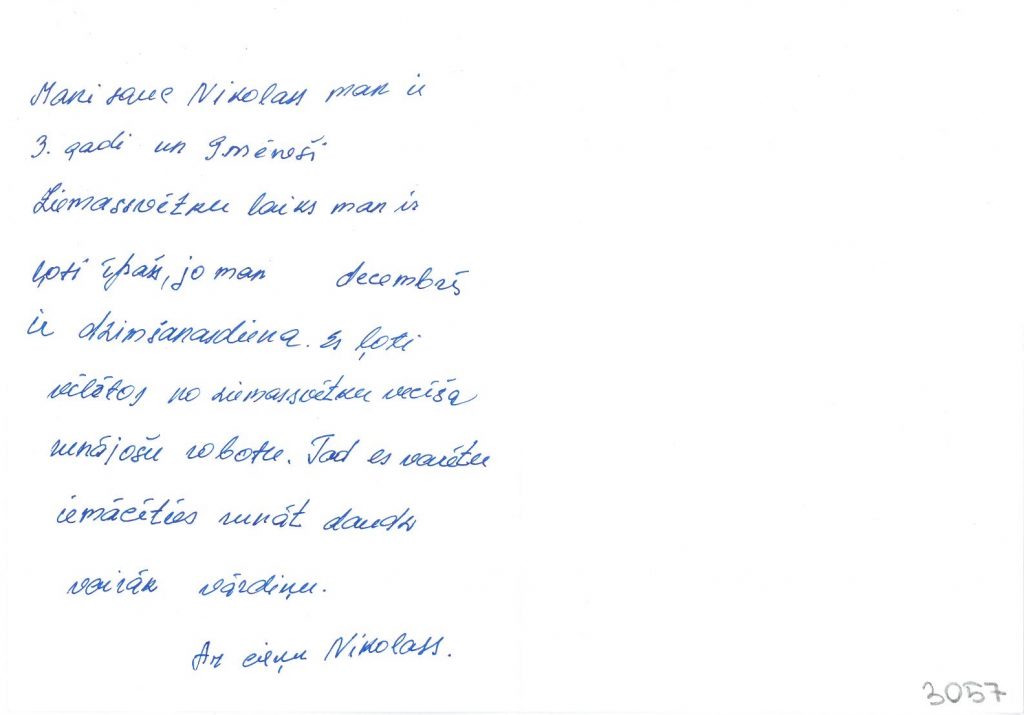 Mani sauc Nikolass man ir
3. gadi un 9 mēneši
Ziemassvētku laiks man ir
ļoti īpašs, jo man decembrī
ir dzimšanasdiena. Es ļoti
vēlētos no ziemassvētku vecīša
runājošu robotu. Tad es varētu
iemācīties runāt daudz
vairāk vārdiņu.
Ar cieņu Nikolass.
3057